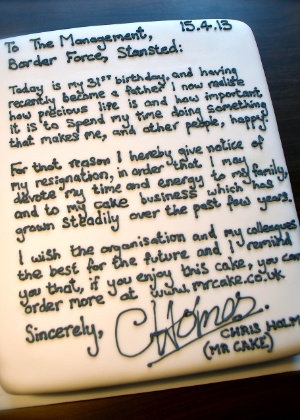 15.4.13
To The Management,
Border Force, Stansted:
Today is my 31st birthday, and having
recently become a father I now realise
how precious life is and how important
it is to spend my time doing something
that makes me, and other people, happy.
For that reason I hereby give notice of
my resignation, in order that I may
devote my time and energy to my family,
and to my cake business which has
grown steadily over the past few years.
I wish the organisation and my colleagues
the best for the future and I remind
you that, if you enjoy this cake, you can
order more at www.mrcake.co.uk
Sincerely, CHolmes.
CHRIS HOLM
(MR CAKE)